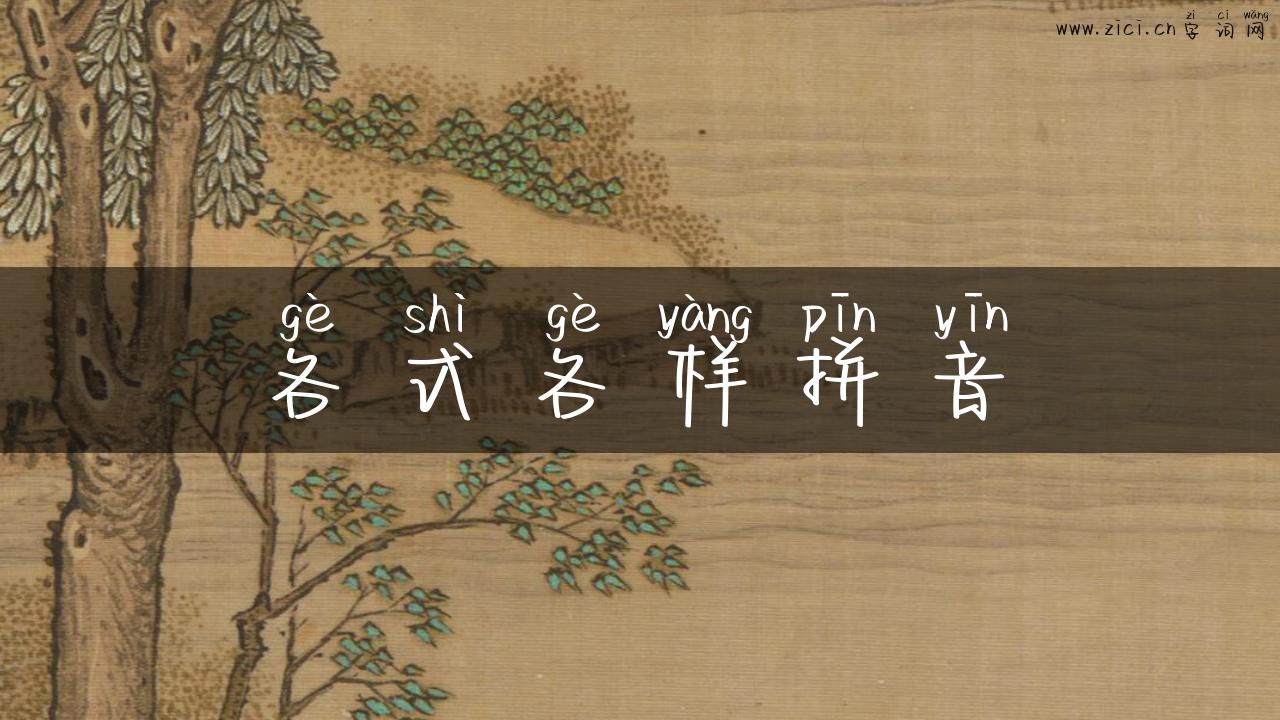 www.zici.cn 字词网
zì cí wǎng
gè shì gè yàng pīn yīn
各式各样拼音